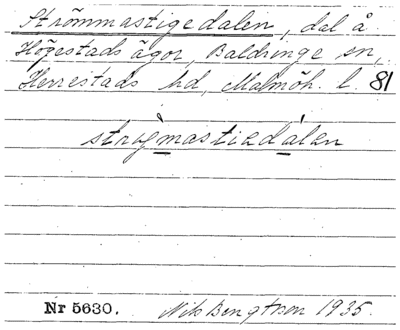 Strömmastigedalen, dal å
Högestads ägor, Baldringe sn,
Herrestads hd, Malmöh. l. 81
strǫ̀mastiedálen
Nr 5630. Nils Bengtson 1935.